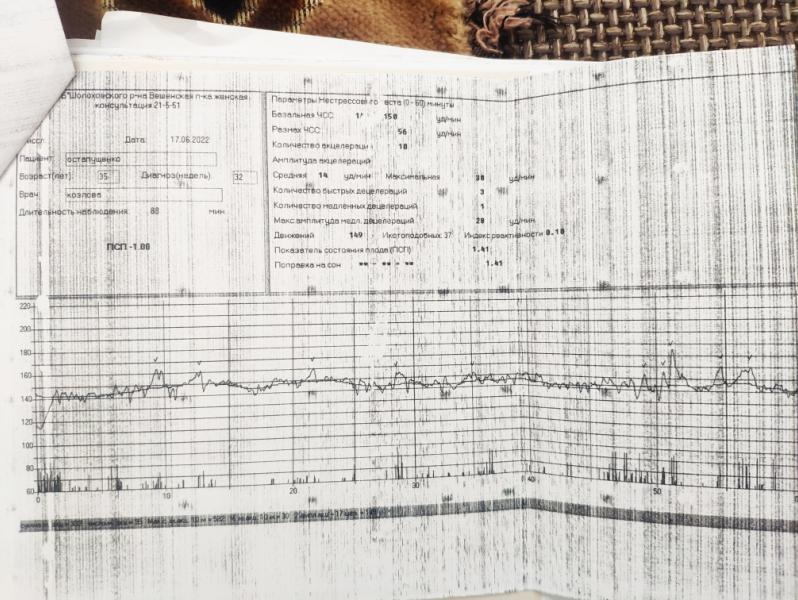 Шолоховского р-на Вешенская п-ка женская
консультация 21-5-51
Дата: 17.06.2022
Пациент остапущенко
Возраст(лет): 35 Диагноз(недель): 32
Врач: козлова
Длительность наблюдения: 88 мин
ПСП -1.00
Параметры Нестрессового теста (0 - 60) минуты
Базальная ЧСС 150 уд/мин
Размах ЧСС 56 уд/мин
Количество акцелераци 10
Амплитуда акцелераций
Средняя 14 уд/мин Максимальная 30 уд/мин
Количество быстрых децелераций 3
Количество медленных децелераций 1
Макс амплитуда медл. децелераций 20 уд/мин
Движений 149 Икотоподобных: 37 Индекс реактивности 0.10
Показатель состояния плода (ПСП) 1.41
Поправка на сон ** - ** - ** 1.41
220
200
180
160
140
120
100
80
60
0 10 20 30 40 50